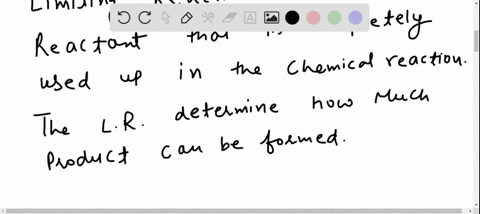 Limiting
Reactant that is
used up in the chemical reaction.
The L.R. determine how Much
Product can be formed.